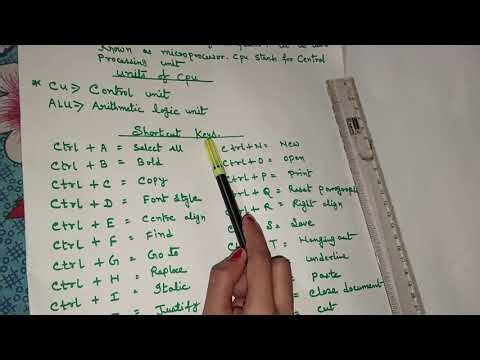 known as microprocessor. CPU stands for Central
Processing unit
Units of CPU
* CU => Control unit
ALU => Arithmetic logic unit
Shortcut Keys.
Ctrl + A = Select all
Ctrl + B = Bold
Ctrl + C = Copy
Ctrl + D = Font style
Ctrl + E = Centre align
Ctrl + F = Find
Ctrl + G = Go to
Ctrl + H = Replace
Ctrl + I = Italic
= Justify
Ctrl + N = New
Ctrl + O = open
Ctrl + P = Print
Ctrl + Q = Reset paragraph
Ctrl + R = Right align
S = Save
T = Hanging out
underline
Paste
= Close document
= cut